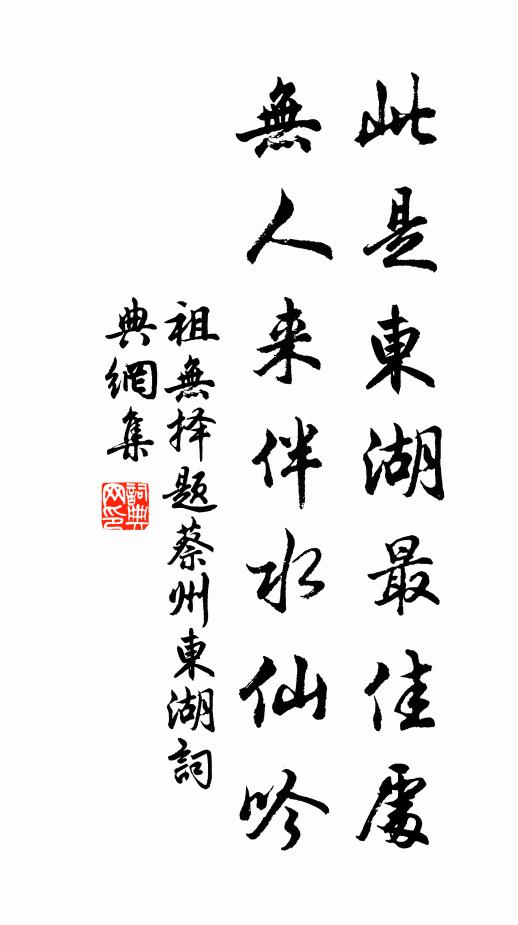 此是東湖最佳處
無人来伴水仙吟
祖無择题蔡州東湖詞
典網集
詞典网印